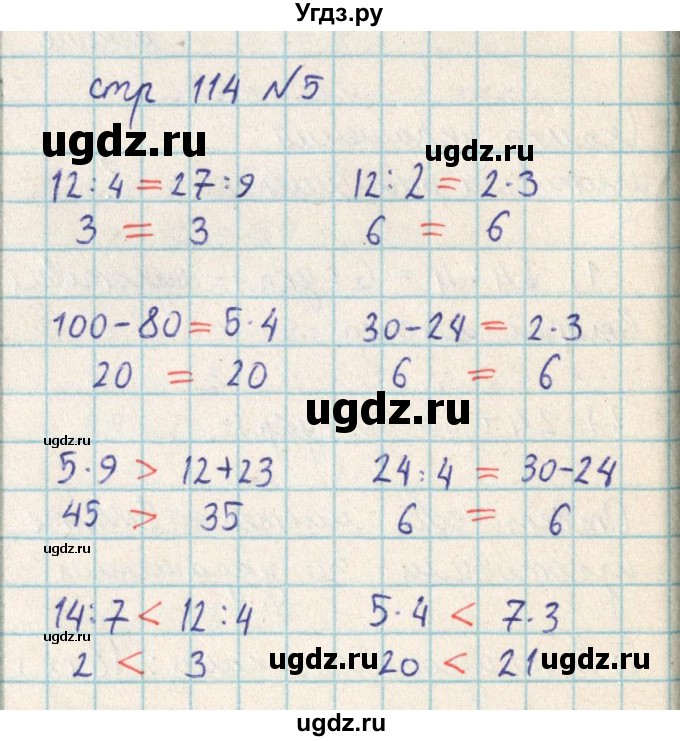 Угдз.ру
стр 114 №5
ugdz.ru
ugdz.ru
12:4=27:9 12:2=2·3
3 = 3 6 = 6
100-80=5·4 30-24=2·3
20 = 20 6 = 6
ugdz.ru
ugdz.ru
5·9 > 12+23 24:4 = 30-24
45 > 35 6 = 6
ugdz.ru
14:7 < 12:4 5·4 < 7·3
2 < 3 20 < 21
ugdz.ru
ugdz.ru
ugdz.ru